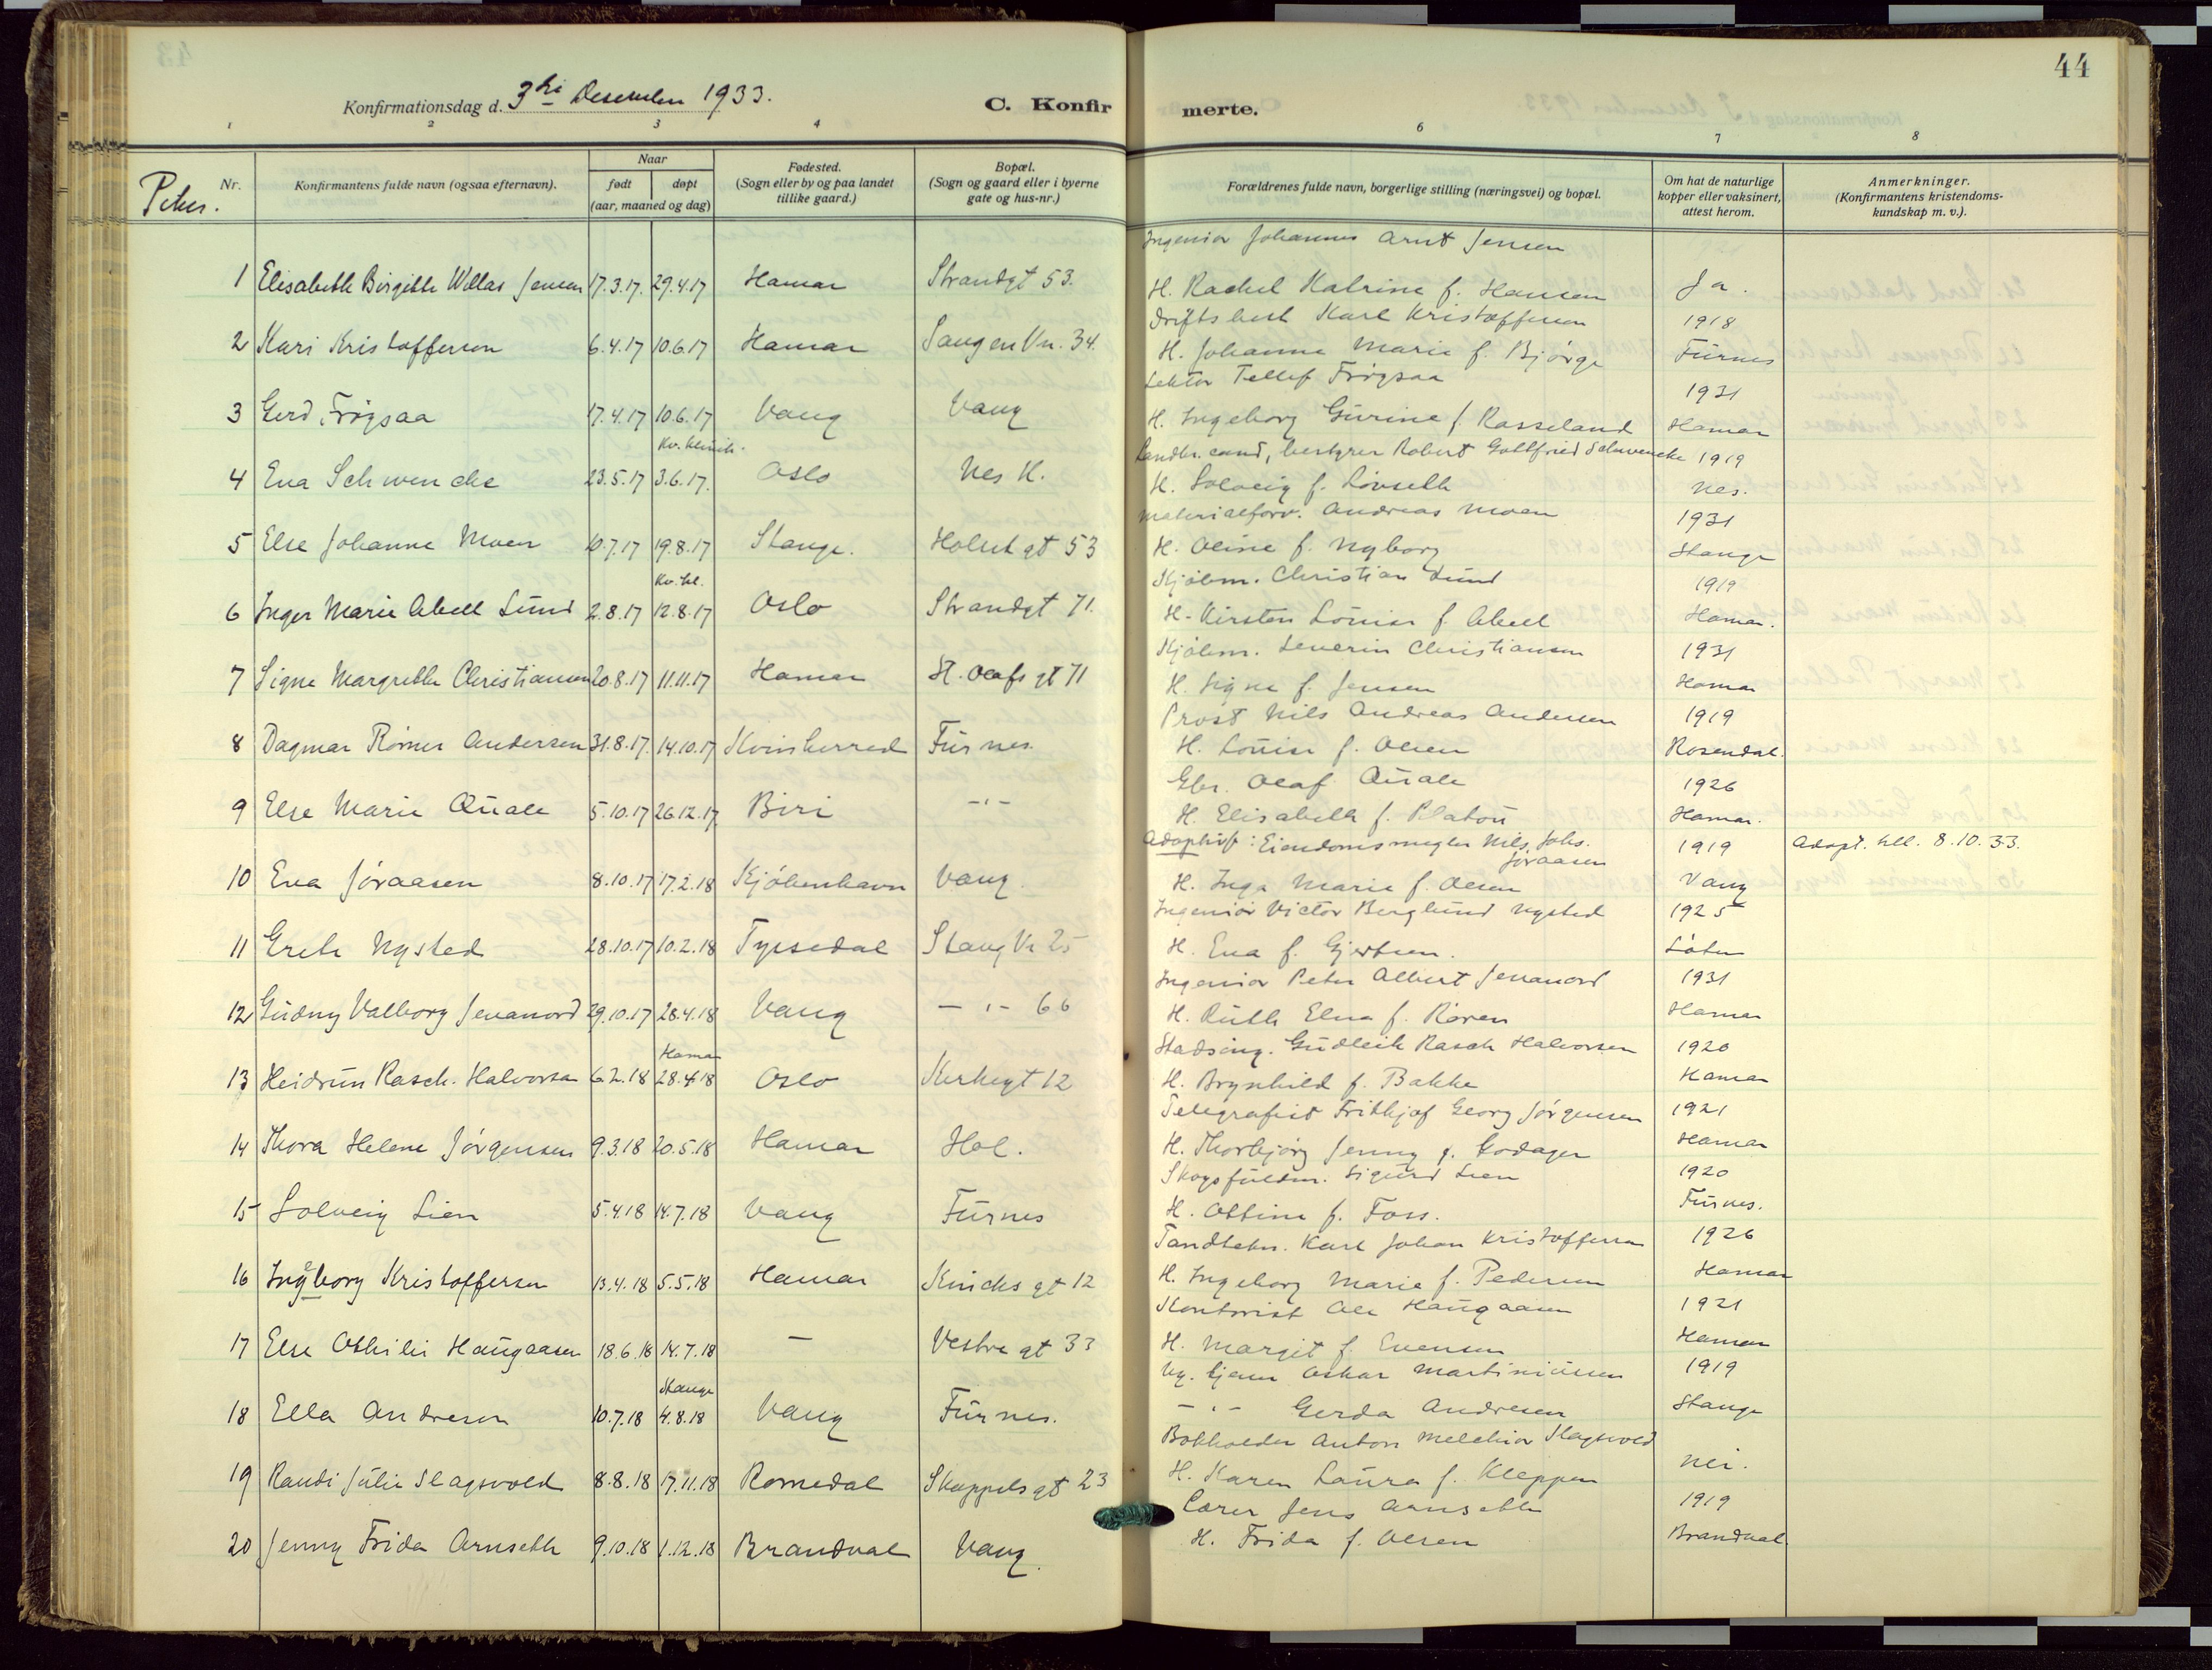 44
Konfirmationsdag d. 3die Desember 1933.
C. Konfirmerte.
1 2 3 4 6 7 8
Nr.
Konfirmantens fulde navn (ogsaa efternavn).
Naar
født
døpt
(aar, maaned og dag)
Fødested.
(Sogn eller by og paa landet
tillike gaard.)
Bopæl.
(Sogn og gaard eller i byerne
gate og hus-nr.)
Forældrenes fulde navn, borgerlige stilling (næringsvei) og bopæl.
Om hat de naturlige
kopper eller vaksinert,
attest herom.
Anmerkninger.
(Konfirmantens kristendoms-
kundskap m. v.).
Ingeniør Johannes Arnt Jensen
1 Elisabeth Birgitte Willas Jensen 17.3.17. 29.4.17 Hamar Strandgt 53. H. Rachel Katrine f. Hansen Ja.
Driftsbest Karl Kristoffersen 1918
2 Kari Kristoffersen 6.4.17 10.6.17 Hamar Sangen Vn. 34. H. Johanne Marie f. Bjørge Furnes
Lektor Tellef Frøgsaa 1931
3 Gerd Frøgsaa 17.4.17 10.6.17 Vang Vang H. Ingeborg Gurine f. Rasseland Hamar
Kv. klinik. Landbr. cand, bestyrer Robert Gottfried Schwencke 1919
4 Eva Schwencke 23.5.17 3.6.17. Oslo Nes H. H. Solveig f. Løvseth Nes.
Materialforv. Andreas Moen 1931
5 Else Johanne Moen 10.7.17 19.8.17 Stange. Holsetgt 53 H. Oline f. Nyborg Stange
Kv. kl. Kjøbm. Christian Lund 1919
6 Inger Marie Abell Lund 2.8.17 12.8.17 Oslo Strandgt 71. H. Kirsten Louise f. Abell Hamar.
Kjøbm. Severin Christiansen 1931
7 Signe Margrethe Christiansen 20.8.17 11.11.17 Hamar St. Olafs gt 71 H. Signe f. Jensen Hamar
Prost Nils Andreas Andersen 1919
8 Dagmar Rømer Andersen 31.8.17. 14.10.17 Kvinherred Furnes. H. Louise f. Olsen Rosendal.
Gbr. Olaf Quale 1926
9 Else Marie Quale 5.10.17 26.12.17 Biri -"- H. Elisabeth f. Platou Hamar.
Adoptivf: Eiendomsmegler Nils Johs. Jøraasen 1919 Adopt. bll. 8.10.33.
10 Eva Jøraasen 8.10.17 17.2.18 Kjøbenhavn Vang. H. Inga Marie f. Olsen Vang
Ingeniør Victor Berglund Nysted 1925
11 Grete Nysted 28.10.17 10.2.18 Tyssedal Stang Vn 25 H. Eva f. Gjertsen. Løten
Ingeniør Peter Albert Jevanord 1931
12 Gudny Valborg Jevanord 29.10.17 28.4.18 Vang -"- 66 H. Ruth Elna f. Røren Hamar
Hamar Stadsing. Gudleik Rasch Halvorsen 1920
13 Heidrun Rasch. Halvorsen 6.2.18 28.4.18 Oslo Kirkegt 12 H. Brynhild f. Bakke Hamar
Telegrafist Frithjof Georg Jørgensen 1921
14 Thora Helene Jørgensen 9.3.18 20.5.18 Hamar Hol. H. Thorbjørg Jenny f. Godager Hamar
Skogsfuldm. Sigurd Lien 1920
15 Solveig Lien 5.4.18 14.7.18 Vang Furnes H. Ottine f. Foss. Furnes.
Tandtekn. Karl Johan Kristoffersen 1926
16 Ingeborg Kristoffersen 13.4.18 5.5.18 Hamar Kincks gt 12 H. Ingeborg Marie f. Pedersen Hamar
Kontorist Ole Haugaasen 1921
17 Else Othilie Haugaasen 18.6.18 14.7.18 - Vestre gt 33 H. Margit f. Evensen Hamar
Stange Ug. tjener Oskar Martiniussen 1919
18 Ella Andresen 10.7.18 4.8.18 Vang Furnes. -"- Gerda Andresen Stange
Bokholder Anton Melchior Slagsvold
19 Randi Julie Slagsvold 8.8.18 17.11.18 Romedal Skappels gt 23 H. Karen Laura f. Kleppen Nei.
Lærer Jens Arnseth 1919
20 Jenny Frida Arnseth 9.10.18 1.12.18 Brandval Vang. H. Frida f. Olsen Brandval.